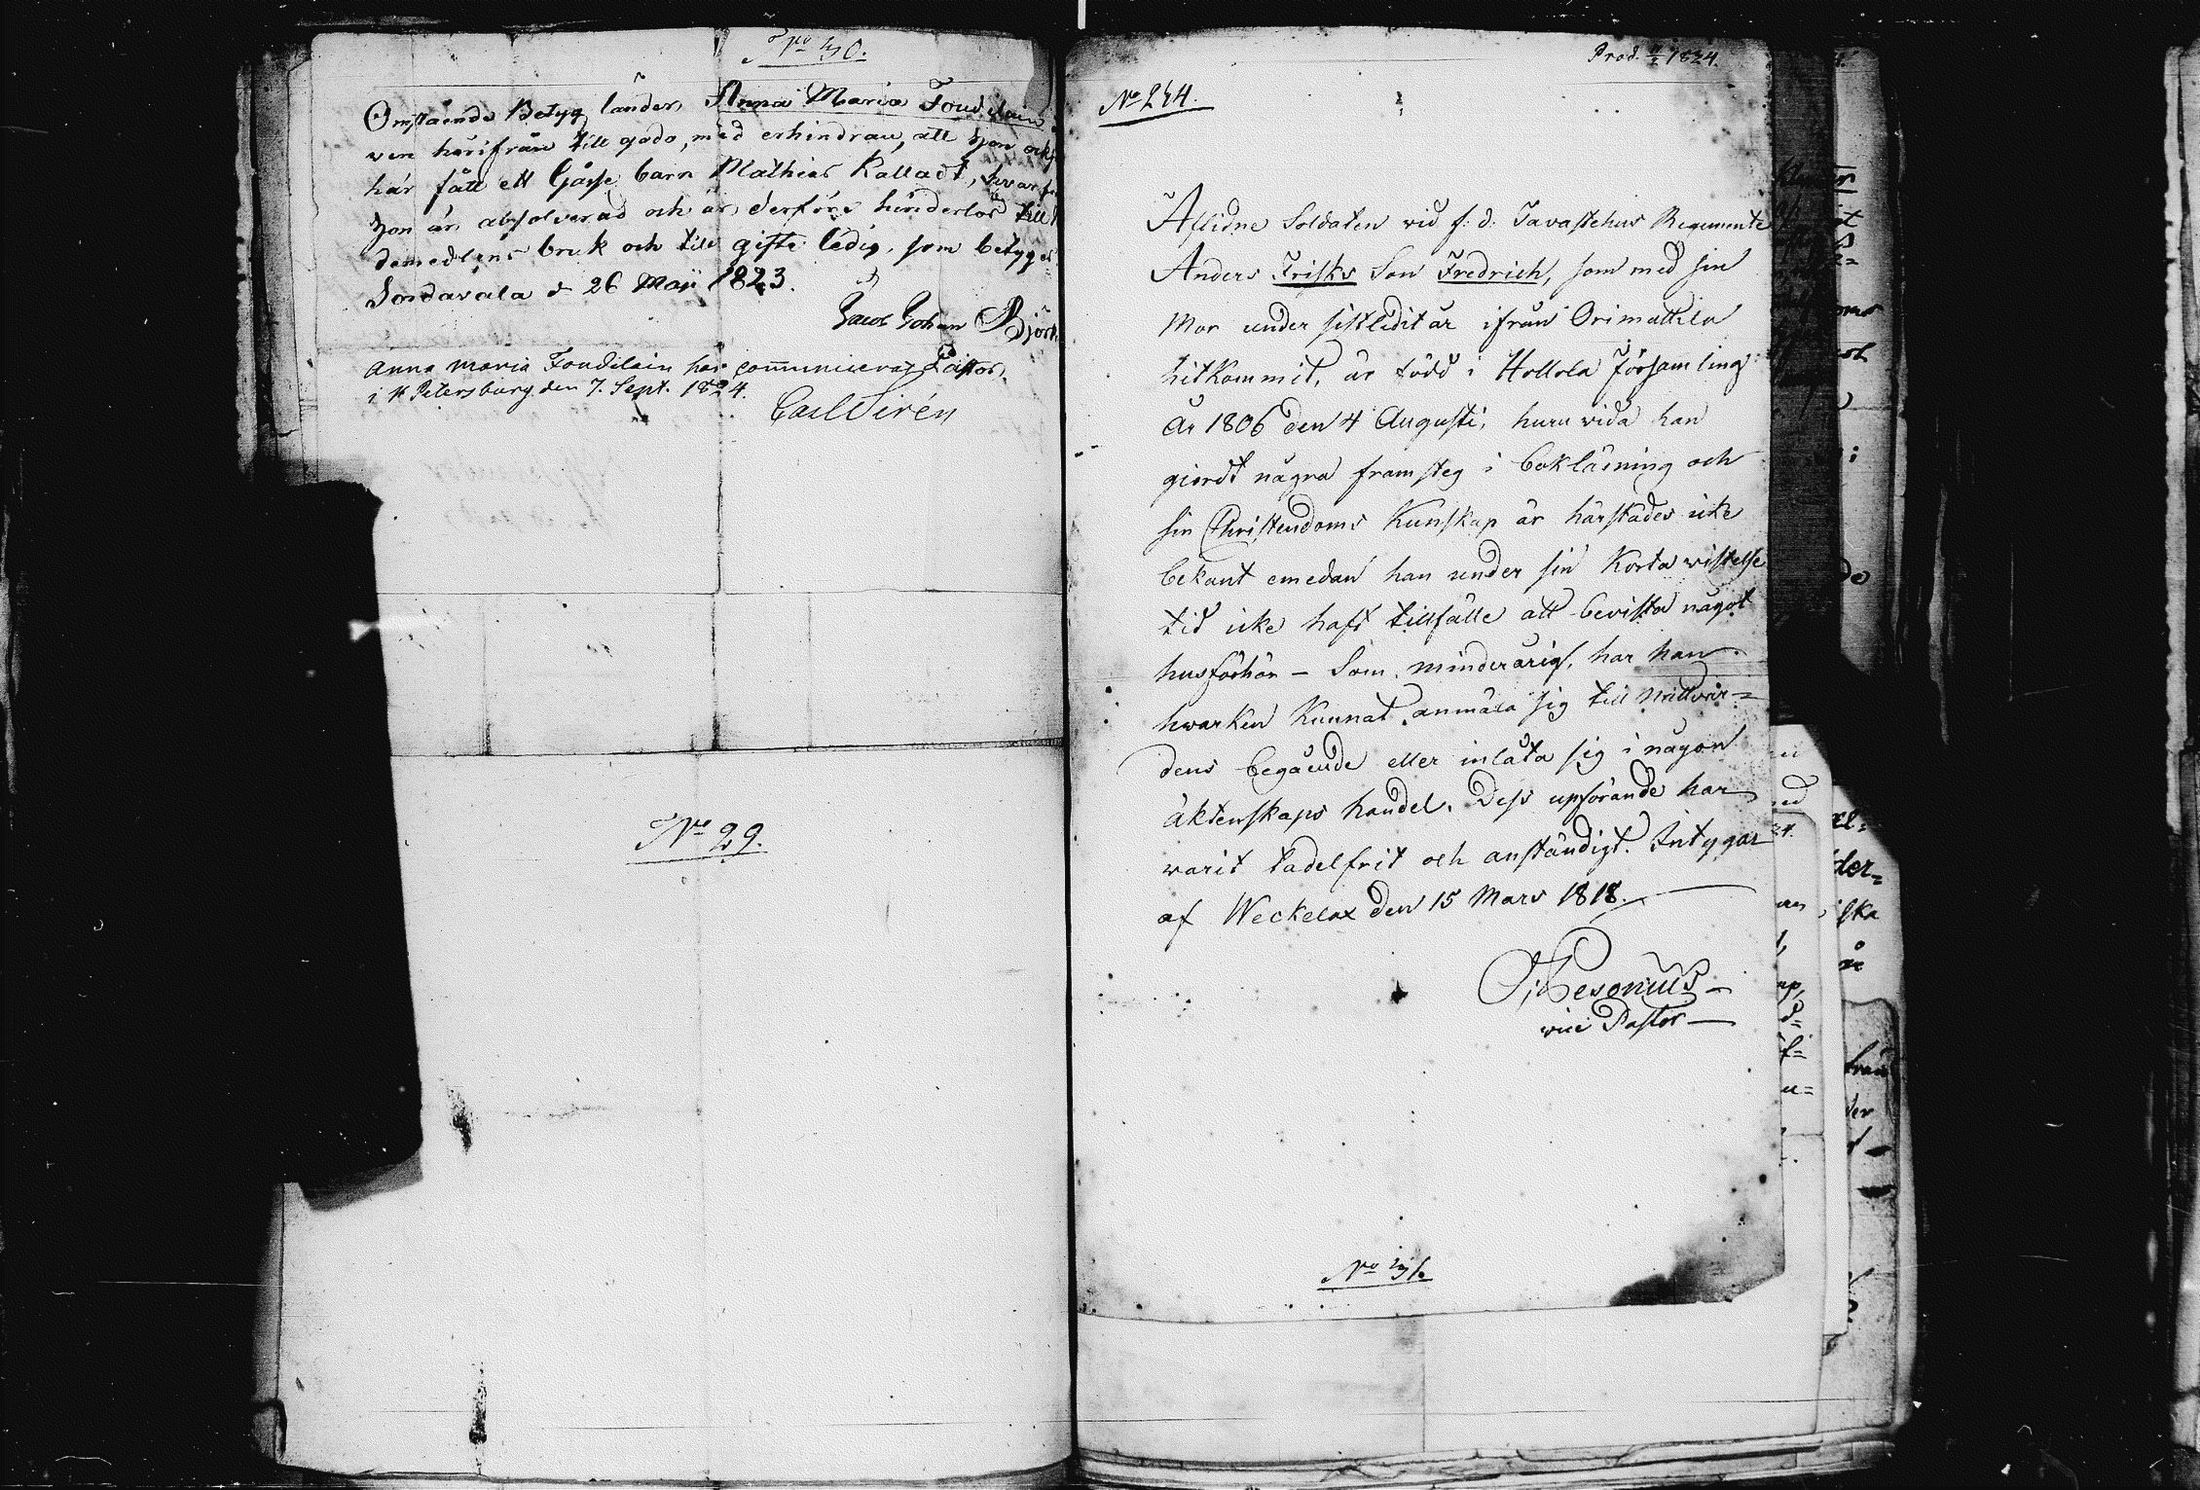 No 30.
Omstående Betyg länder Anna Maria Toudelain
ven härifrån till godo, med erhindran, att hon ock
här fått ett Gåsse barn Mathias kalladt, hvarför
hon är absolverad och är derföre hinderlös till
demedlens bruk och till gifte ledig, som betygas
Sordavala d 26 Maji 1823.
Jacob Johan Björk
Pastor.
Anna Maria Toudelain har communicerat
i St Petersburg den 7. Sept. 1824.
Carl Sirén
No 29.
Prod. 1824.
No 244.
Aflidne Soldaten vid f: d: Tavastehus Regemente
Anders Frisks Son Fredrich, som med sin
Mor under sistledit år ifrån Orimattila
hitkommit, är född i Hollola Församling
år 1806 den 4 Augusti; huru vida han
giordt några framsteg i bokläsning och
sin Christendoms Kunskap är härstädes icke
bekant emedan han under sin Korta vistelse
tid icke haft tillfälle att bevista något
husförhör – Som minderårig, har han
hwarken Kunnat anmäla sig till Nattvar=
dens begående eller inlåta sig i någon
äktenskaps handel. Dess upförande har
warit tadelfrit och anständigt. Intygar
af Weckelax den 15 Mars 1818.
vice Pastor
No 31.